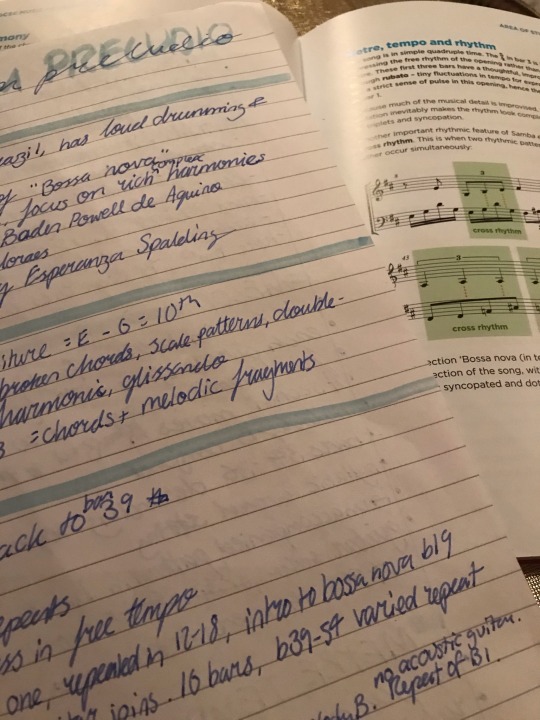 mony
PRELUDIO
preludio
has loud drumming &
"Bossa nova"
complex
focus on rich harmonies
Baden Powell de Aquino
Esperanza Spalding
= E - G = 10th
broken chords, scale patterns, double-
harmonic, glissando
= chords + melodic fragments
ack to bar 39
in free tempo
one, repeated in 12-18, intro to bossa nova b19
joins. 16 bars, b39-54 varied repeat
no acoustic guitar.
B. Repeat of B1.
AREA OF
etre, tempo and rhythm
song is in simple quadruple time. The
in bar 3 is
essing the free rhythm of the opening rather than
. These first three bars have a thoughtful,
ugh rubato – tiny fluctuations in tempo for
a strict sense of pulse in this opening, hence
r 1.
use much of the musical detail is improvised,
tation inevitably makes the rhythm look
plets and syncopation.
ther important rhythmic feature of Samba
ss rhythm. This is when two rhythmic
er occur simultaneously:
3
cross rhythm
43
3
cross rhythm
ection 'Bossa nova (in
ection of the song, wit
syncopated and dot